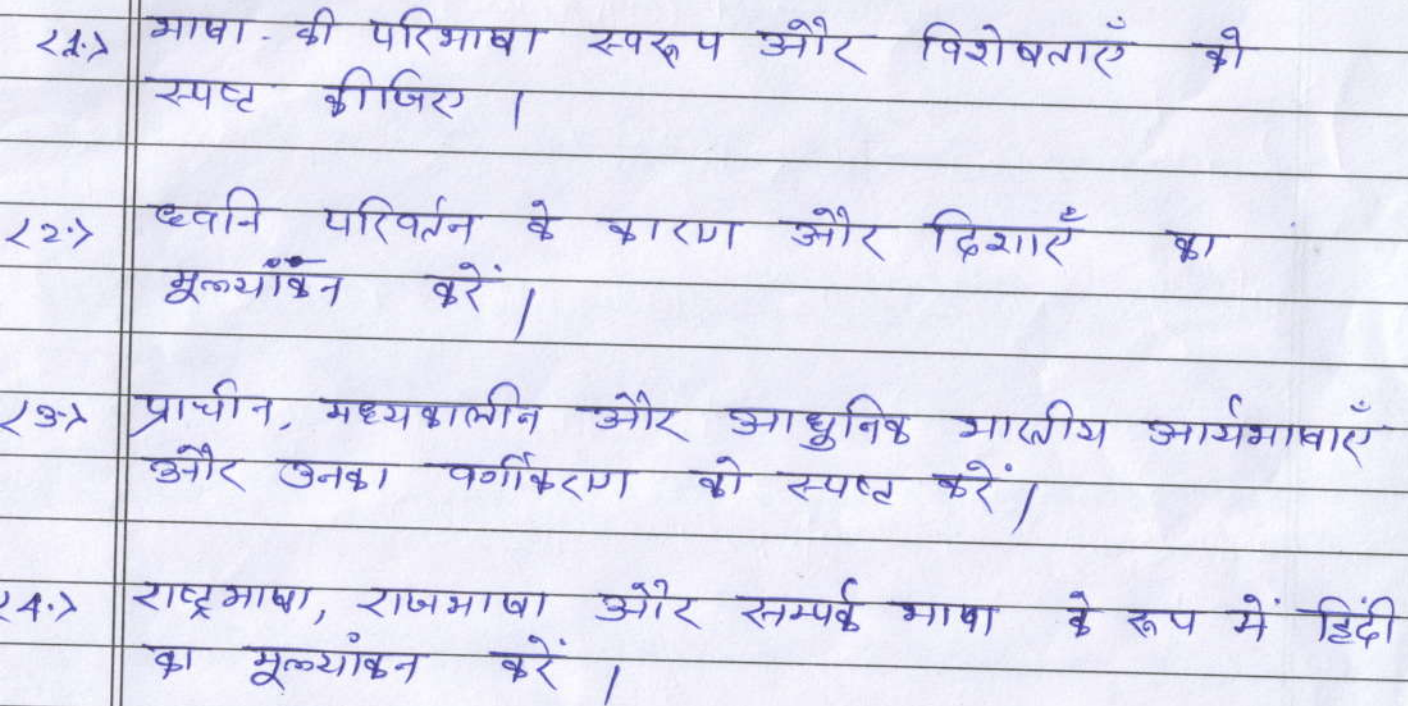 <1.> भाषा की परिभाषा स्वरूप और विशेषताएँ को
स्पष्ट कीजिए |
<2.> ध्वनि परिवर्तन के कारण और दिशाएँ का
मूल्यांकन करें |
<3.> प्राचीन, मध्यकालीन और आधुनिक भारतीय आर्यभाषाएँ
और उनका वर्गीकरण को स्पष्ट करें |
<4.> राष्ट्रभाषा, राजभाषा और सम्पर्क भाषा के रूप में हिंदी
का मूल्यांकन करें |